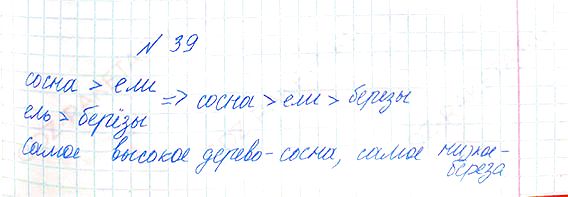 № 39
сосна > ели
ель > берёзы
=> сосна > ели > березы
Самое высокое дерево - сосна, самое низкое -
береза